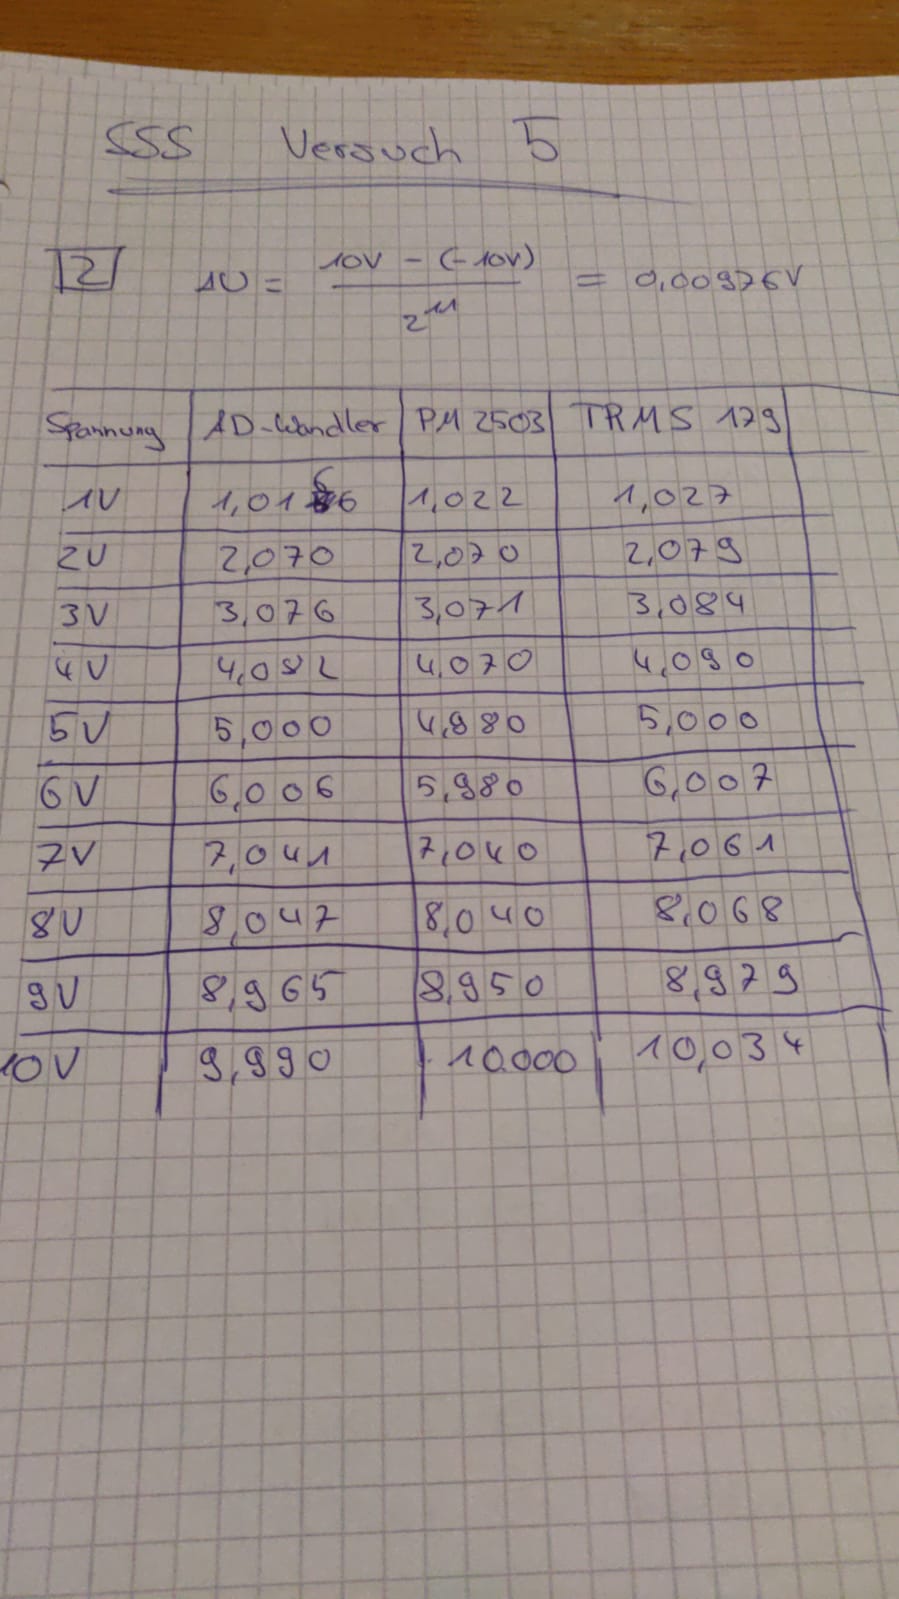 SSS Versuch 5
2 ΔU = 10V - (-10V) / 2^11 = 0,00976V
Spannung AD-Wandler PM 2503 TRMS 179
1V 1,0166 1,022 1,027
2V 2,070 2,070 2,079
3V 3,076 3,071 3,084
4V 4,082 4,070 4,090
5V 5,000 4,980 5,000
6V 6,006 5,980 6,007
7V 7,041 7,040 7,061
8V 8,047 8,040 8,068
9V 8,965 8,950 8,979
10V 9,990 10.000 10,034